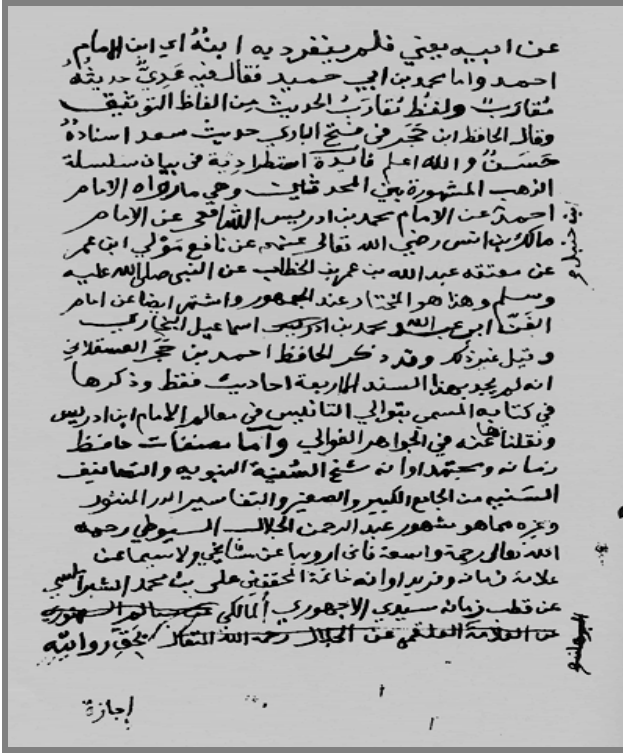 عن ابيه يعني فلم ينفرد به ابنُهُ اي ابن الامام
احمد واما محمد بن ابي حميد فقال فيه عَدِيّ حديثُهُ
مُقارَبٌ ولفظ مُقارَبُ الحديث مِن الفاظ التوثيق
وقال الحافظ ابن حَجَر في فتح الباري حديث سعد اسنادهُ
حَسَنٌ والله اعلم فائدة استطرادية في بيان سلسلة
الذهب المشهورة بين المحدثين وهي ما رواه الامام
احمد عن الامام محمد بن ادريس الشافعي عن الامام
مالك بن انس رضي الله تعالى عنهم عن نافع مَوْلي ابن عمر
عن معتقه عبد الله بن عمر بن الخطاب عن النبي صلى الله عليه
وسلم وهذا هو المختار عند الجمهور واشتهر ايضا عن امام
الفَنّ ابي عبد الله محمد بن ادريس اسماعيل البخاري
وقيل غير ذلك وقد ذكر الحافظ احمد بن حَجَر العسقلاني
انه لم يجد بهذا السند الا اربعة احاديث فقط وذكرها
في كتابه المسمى بتوالي التأنيس في معالم الامام ابن ادريس
ونقلناها عنه في الجواهر الغوالي وأما مصنفات حافظ
زمانه ومجتهد اوانه شيخ السُنية النبويه والتصانيف
السَنيه من الجامع الكبير والصغير والتفاسير الدر المنثور
وغيره مما هو مشهور عبد الرحمن الجلال السيوطي رحمه
الله تعالى رحمة واسعة فاني ارويها عن مشايخي ولاسيما عن
علامة زمانه وفريد اوانه خاتمة المحققين علي بن محمد الشبراملسي
عن قطب زمانه سيدي الاجهوري المالكي عن سالم السنهوري
عن العلامة العلقمي عن الجلال رحمه الله المتعال بحق روايته
ابن حنبل
البرهان
إجازة